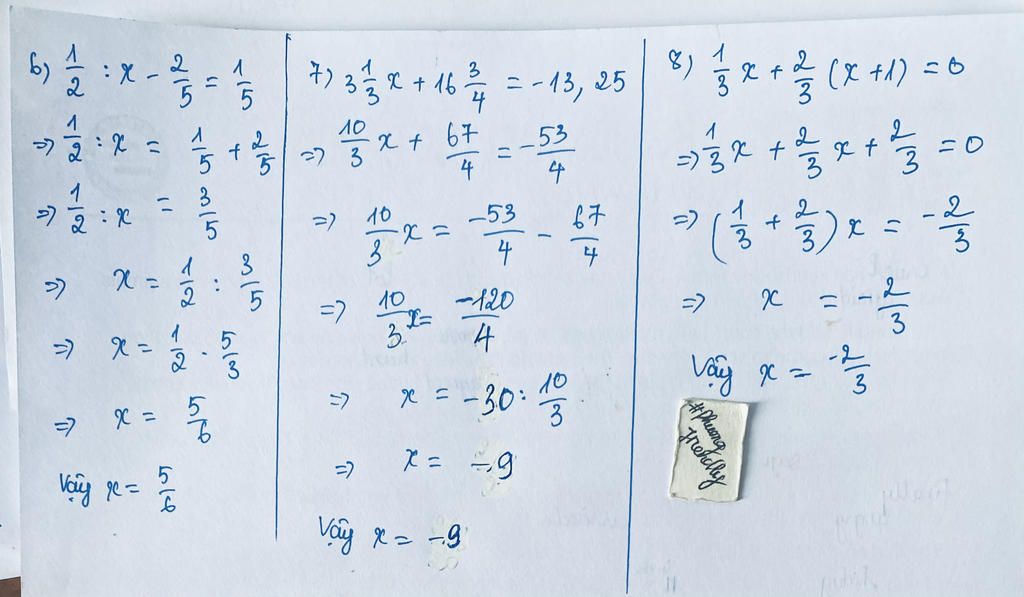 6) 1/2 : x - 2/5 = 1/5
=> 1/2 : x = 1/5 + 2/5
=> 1/2 : x = 3/5
=> x = 1/2 : 3/5
=> x = 1/2 . 5/3
=> x = 5/6
Vậy x = 5/6
7) 3 1/3 x + 16 3/4 = -13,25
=> 10/3 x + 67/4 = -53/4
=> 10/3 x = -53/4 - 67/4
=> 10/3 x = -120/4
=> x = -30 : 10/3
=> x = -9
Vậy x = -9
8) 1/3 x + 2/3 (x+1) = 0
=> 1/3 x + 2/3 x + 2/3 = 0
=> (1/3 + 2/3) x = -2/3
=> x = -2/3
Vậy x = -2/3
#Phuong